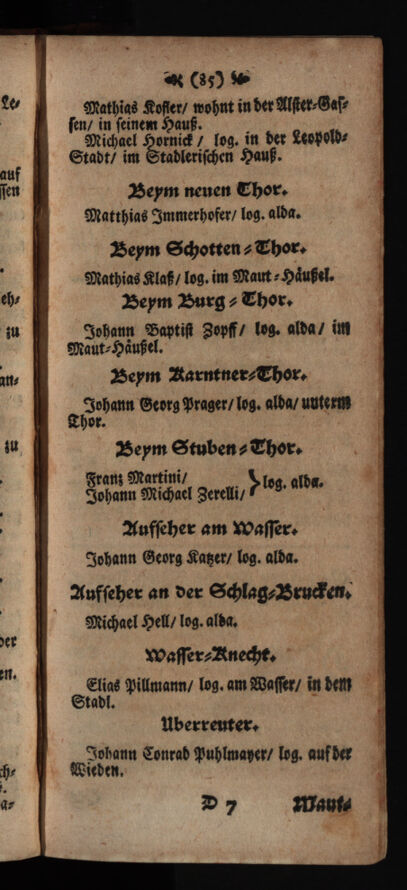 (85)
Mathias Kofler/ wohnt in der Alster-Gas-
sen/ in seinem Hauß.
Michael Hornick/ log. in der Leopold-
Stadt/ im Stadlerischen Hauß.
Beym neuen Thor.
Matthias Immerhofer/ log. alda.
Beym Schotten-Thor.
Mathias Klaß/ log. im Maut-Häußel.
Beym Burg-Thor.
Johann Baptist Zopff/ log. alda/ im
Maut-Häußel.
Beym Karntner-Thor.
Johann Georg Prager/ log. alda/ unterm
Thor.
Beym Stuben-Thor.
Frantz Martini/
Johann Michael Zerelli/ } log. alda.
Aufseher am Wasser.
Johann Georg Katzer/ log. alda.
Aufseher an der Schlag-Brucken.
Michael Hell/ log. alda.
Wasser-Knecht.
Elias Pillmann/ log. am Wasser/ in dem
Stadl.
Uberreuter.
Johann Conrad Puhlmayer/ log. auf der
Wieden.
D 7 Maut-